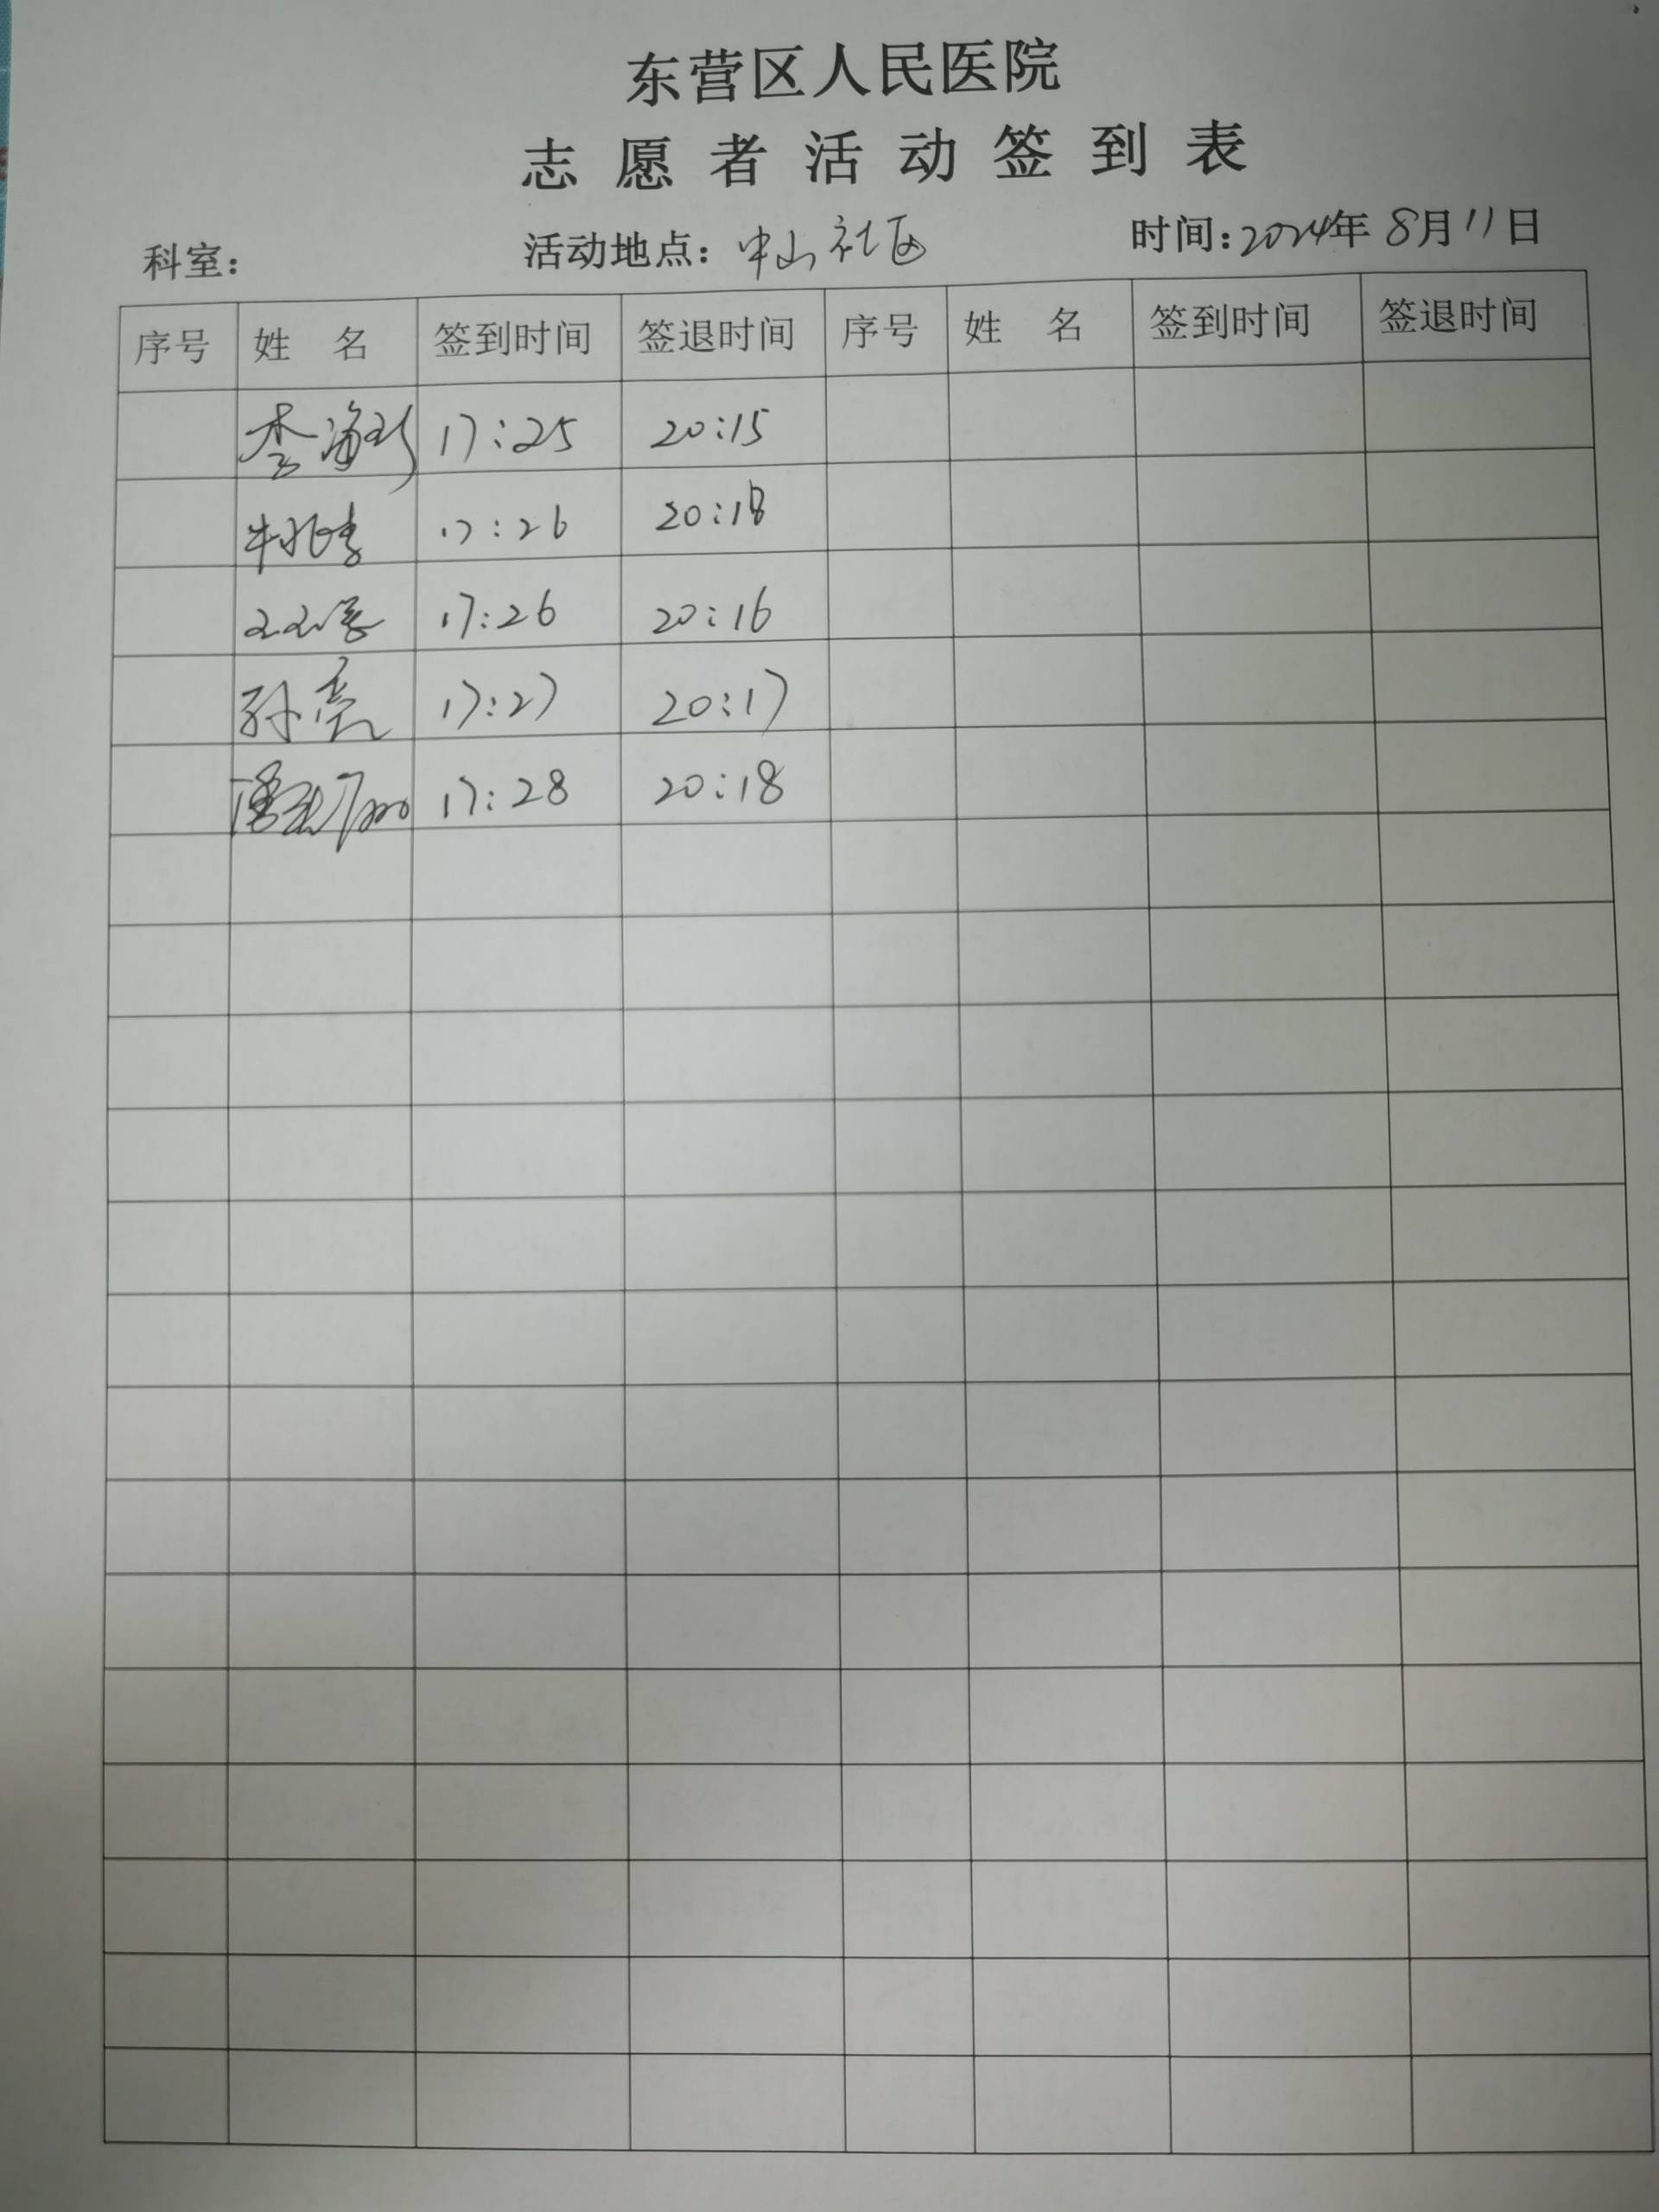 东营区人民医院
志愿者活动签到表
科室： 活动地点：中山社区 时间：2024年8月11日
序号 姓 名 签到时间 签退时间 序号 姓 名 签到时间 签退时间
李海 17:25 20:15
牛兆 17:26 20:18
17:26 20:16
孙亮 17:27 20:17
17:28 20:18